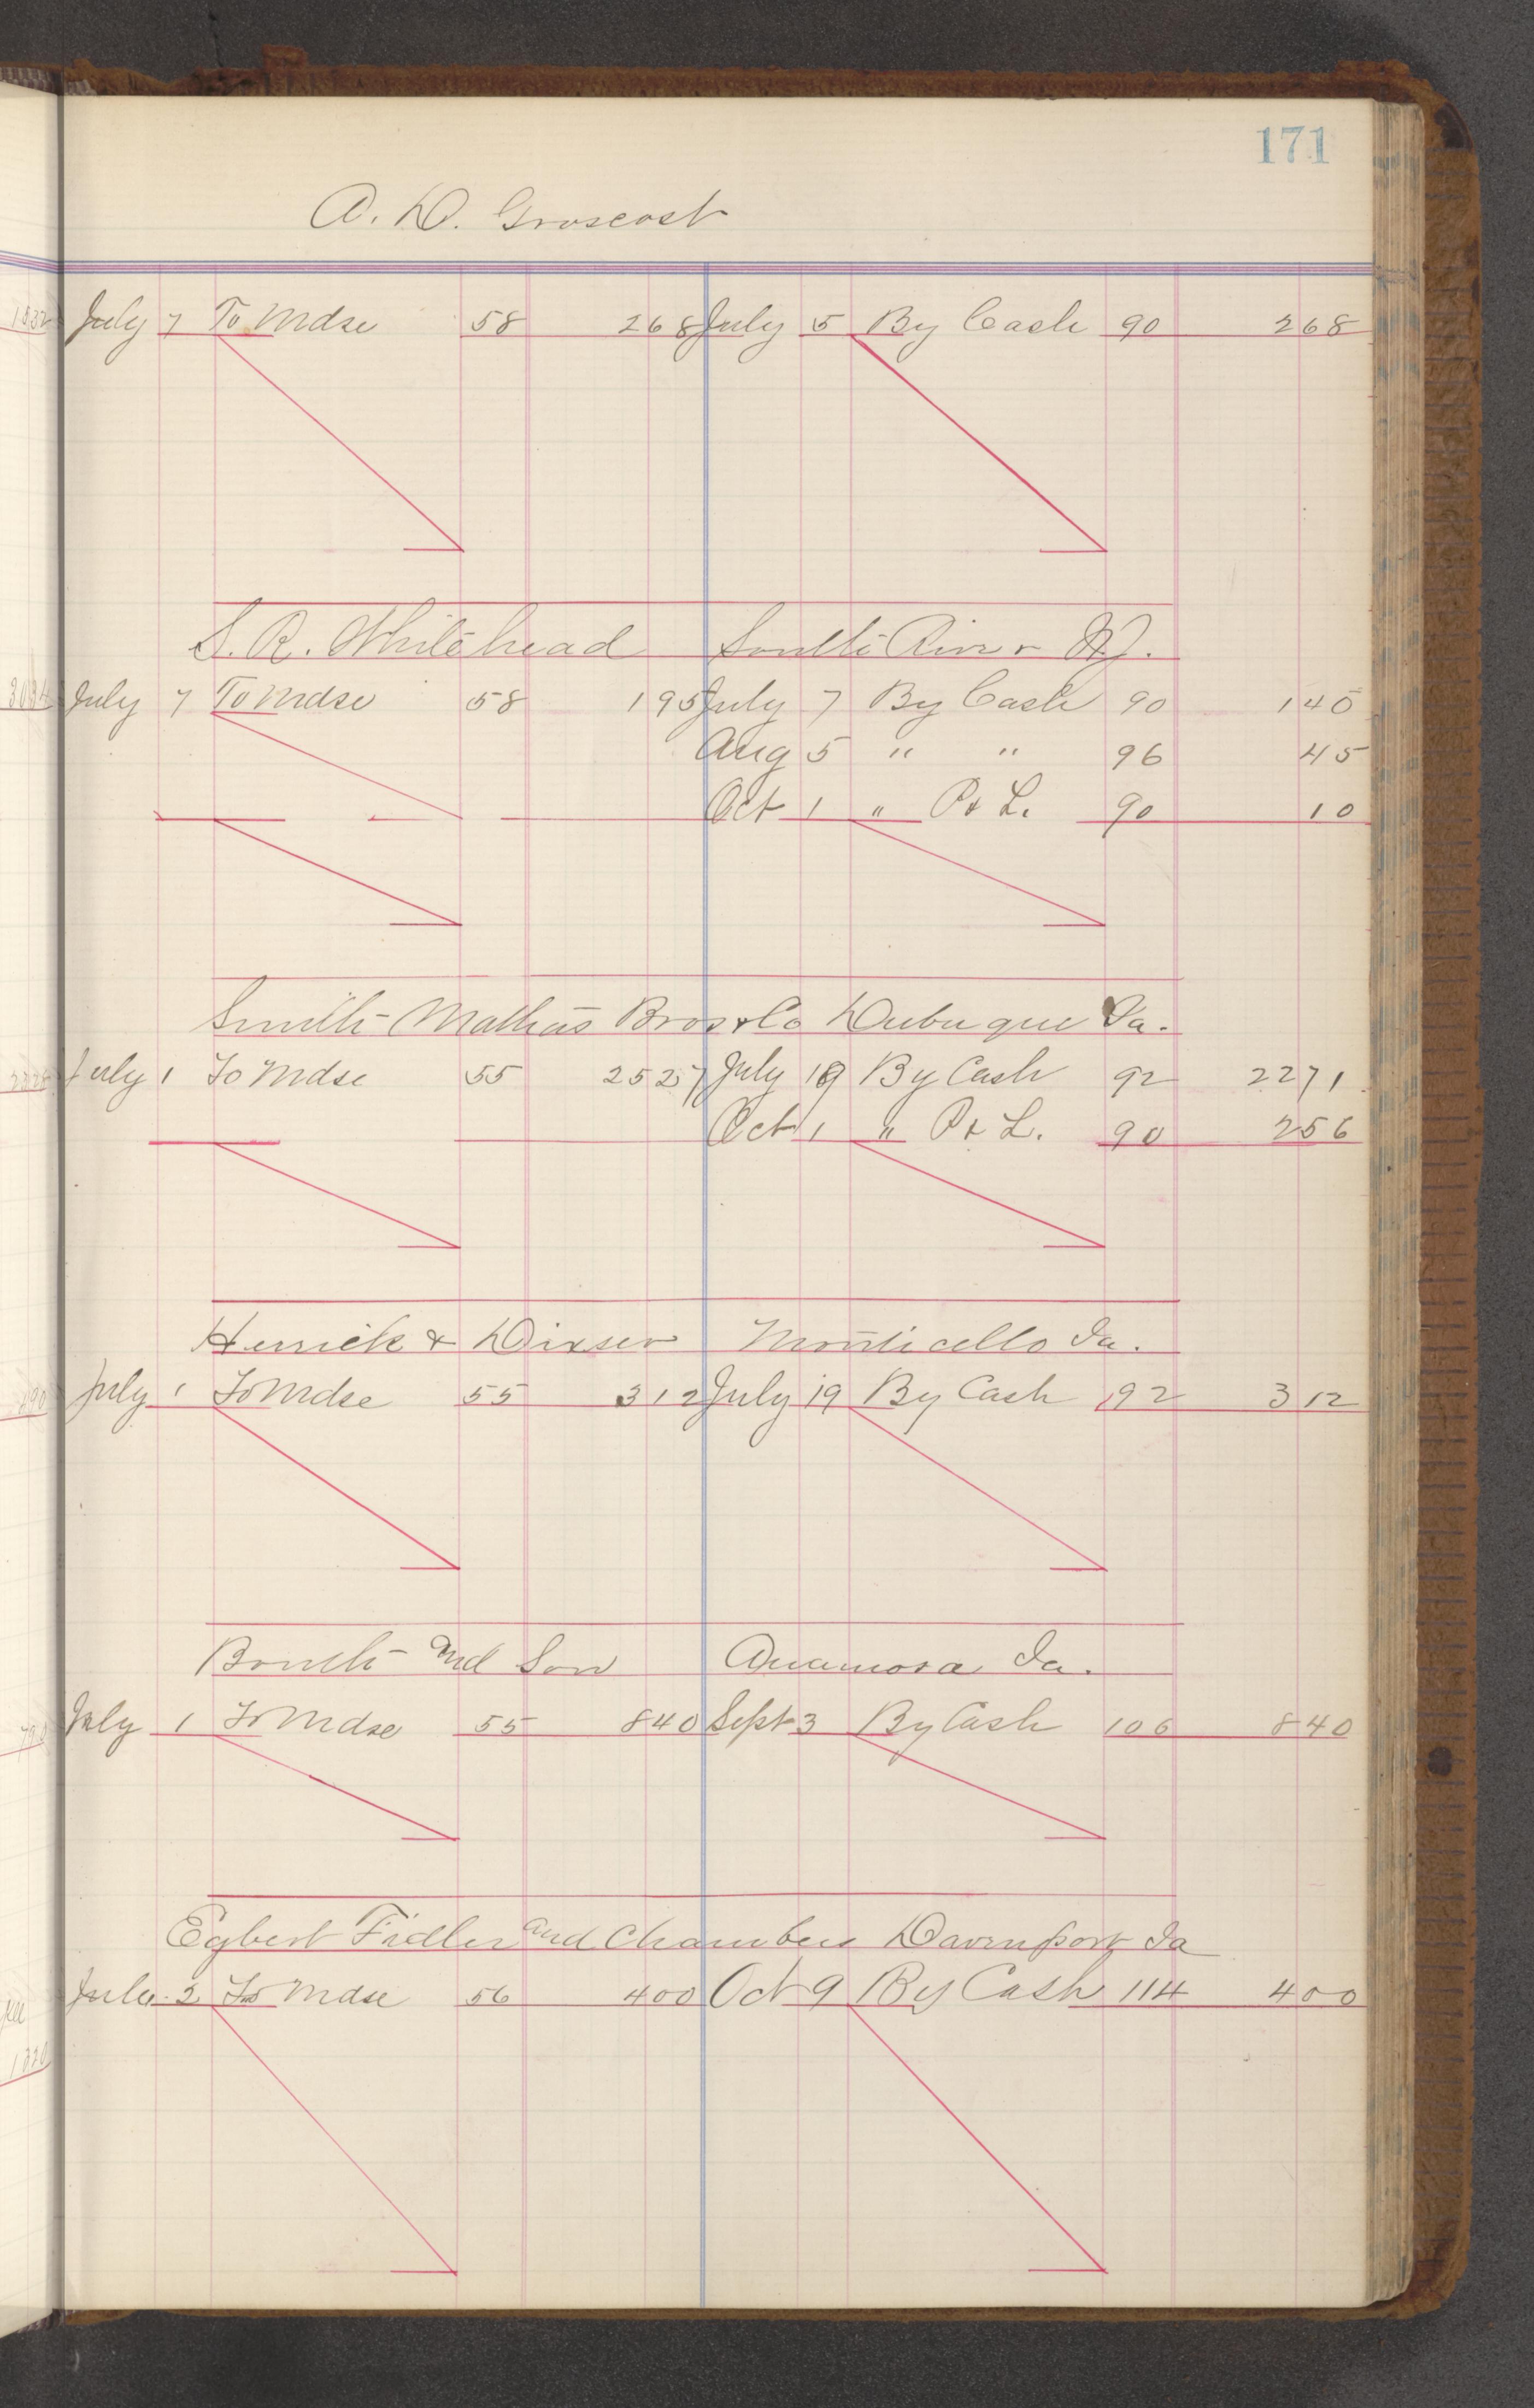 171
A. D. Groscost
July 7 To Mdse 58 268 July 5 By Cash 90 268
S. R. Whitehead South River N.J.
July 7 To Mdse 58 195 July 7 By Cash 90 140
Aug 5 " " 96 45
Oct 1 " P & L. 90 10
Smith Mathis Bros & Co Dubuque Ia.
July 1 To Mdse 55 2527 July 19 By Cash 92 2271
Oct 1 " P & L. 90 256
Herrick & Dixson Monticello Ia.
July 1 To Mdse 55 312 July 19 By Cash 92 312
and Son Anamosa Ia.
July 1 To Mdse 55 840 Sept 3 By Cash 106 840
Egbert Fidler and Chambers Davenport Ia
July 2 To Mdse 56 400 Oct 9 By Cash 114 400